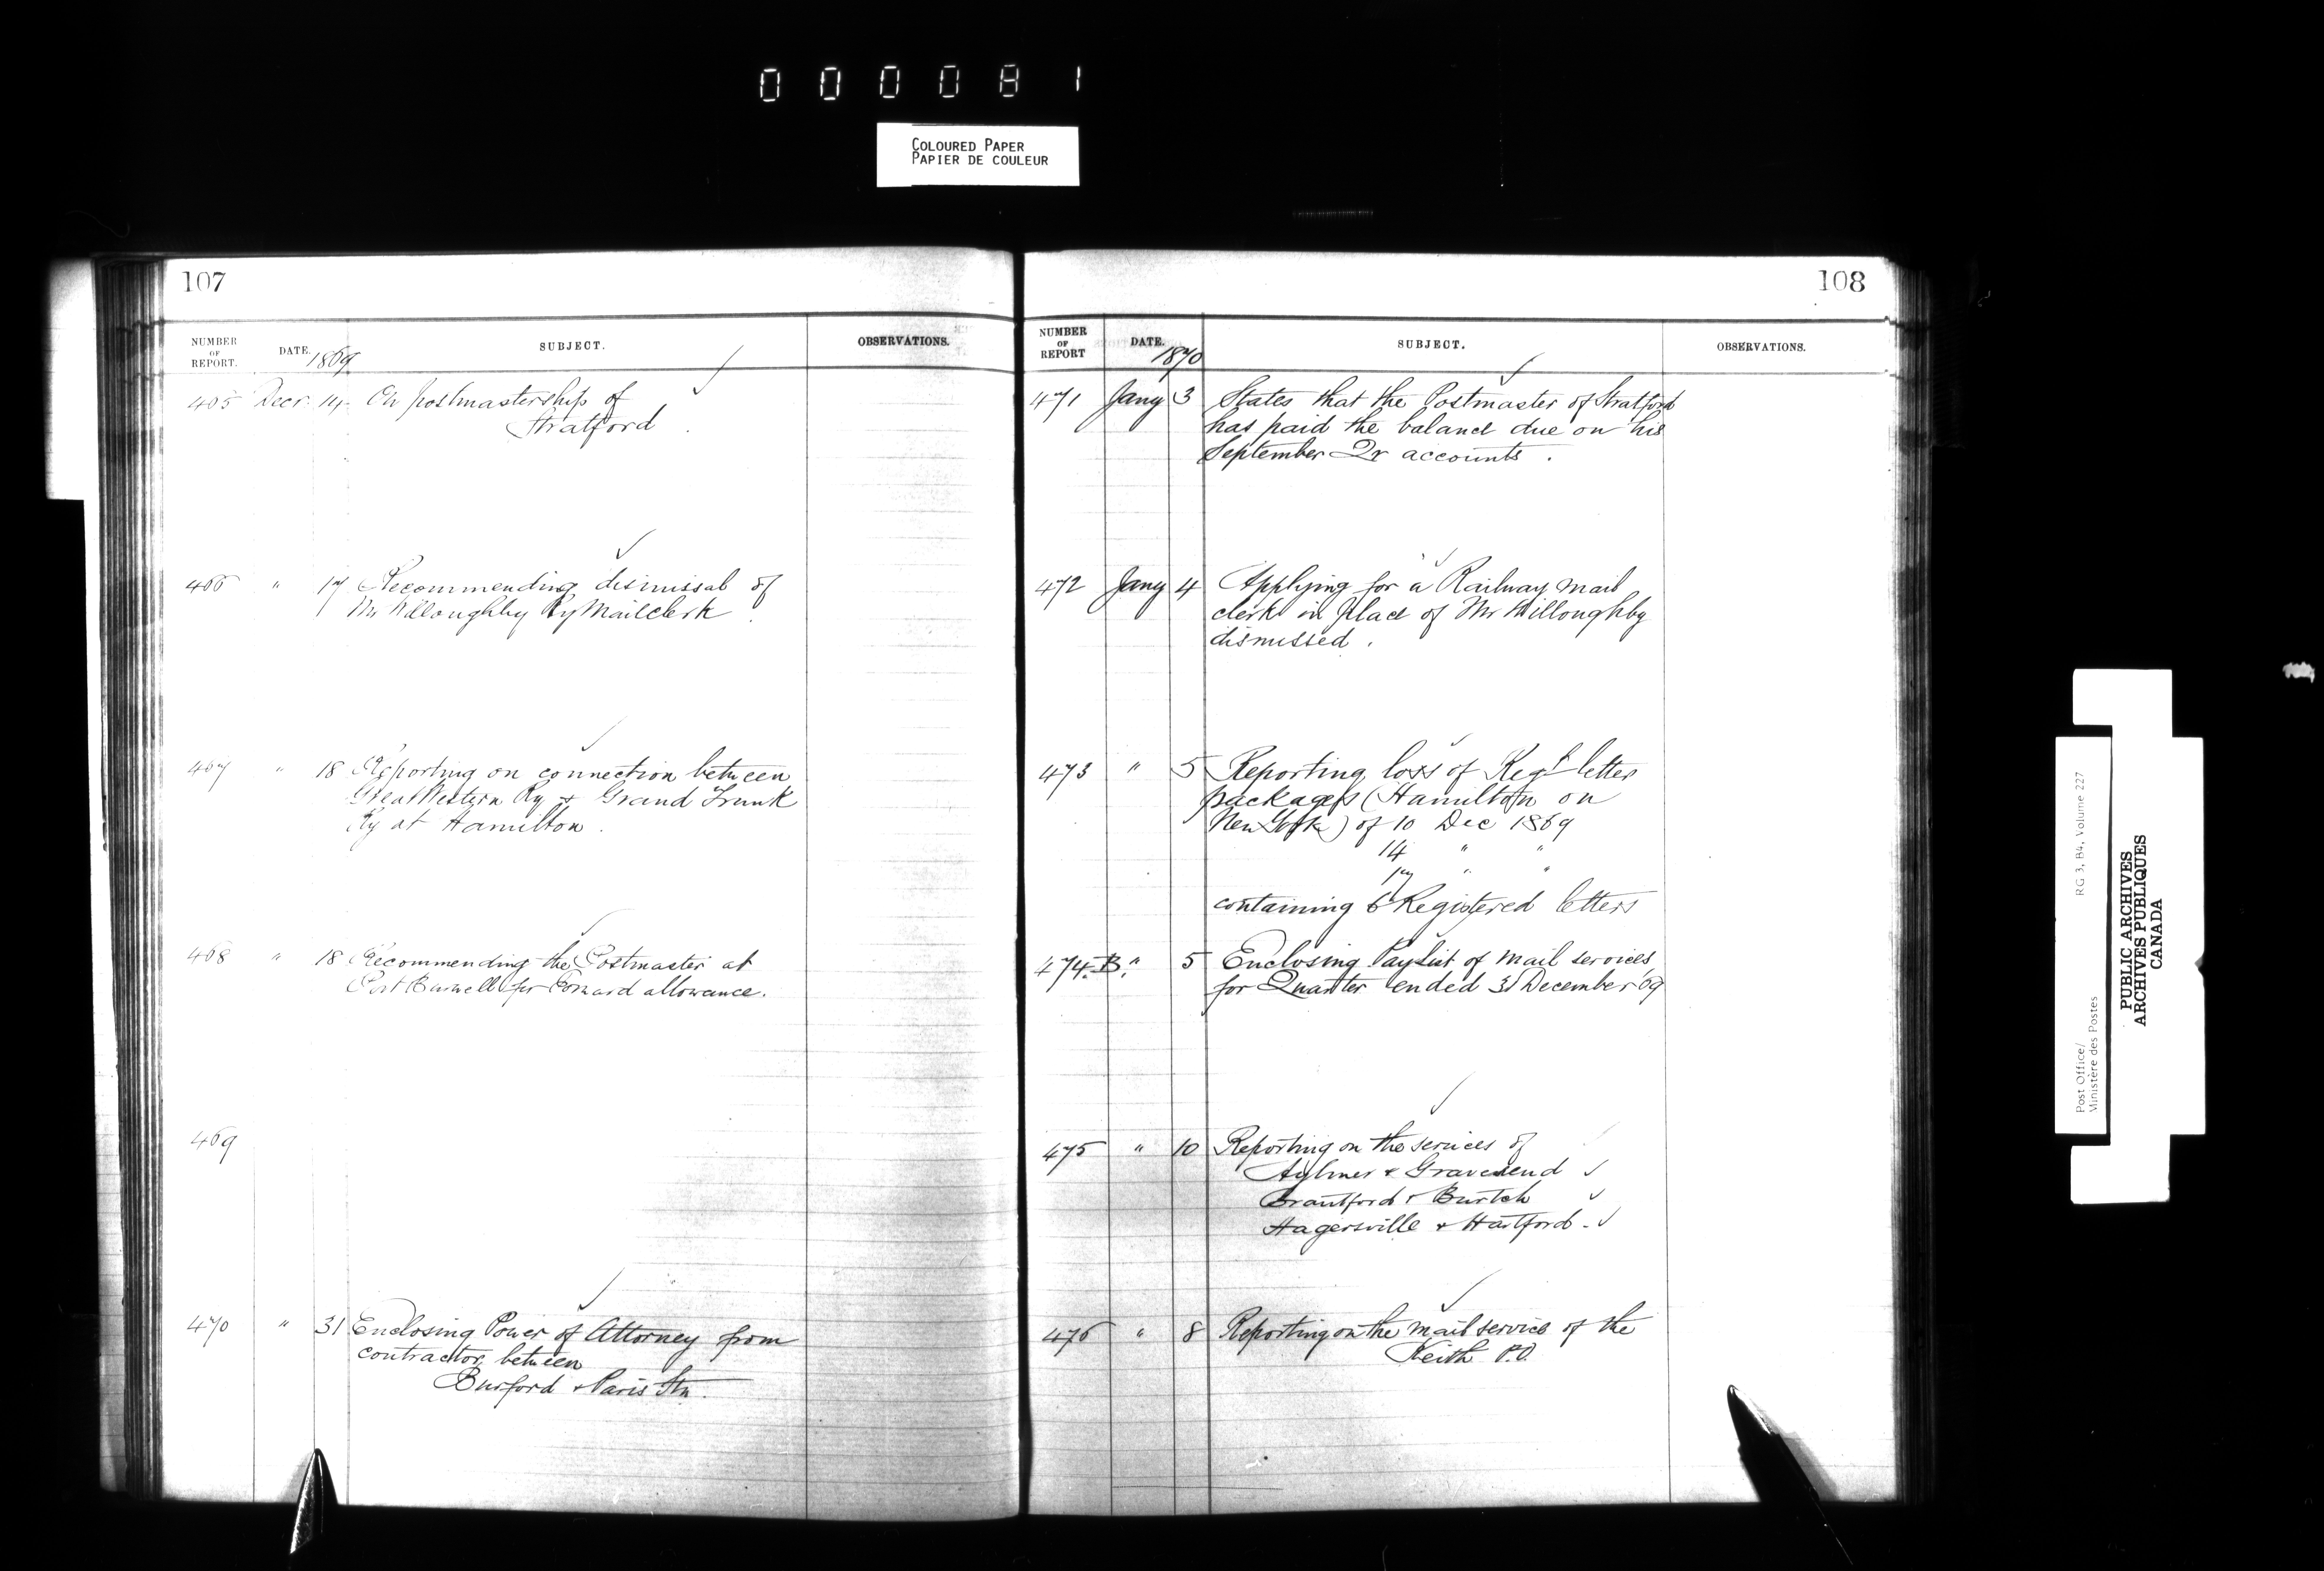 000081
COLOURED PAPER
PAPIER DE COULEUR
107
NUMBER OF REPORT. DATE. 1869 SUBJECT. OBSERVATIONS.
465 Decr. 14 On postmastership of
Stratford
466 " 17 Recommending dismissal of
Mr Willoughby Ry Mail clerk
467 " 18 Reporting on connection between
Great Western Ry & Grand Trunk
Ry at Hamilton.
468 " 18 Recommending the Postmaster at
Port Burwell for Forward allowance.
469
470 " 31 Enclosing Power of Attorney from
contractor between
Burford & Paris Stn.
108
NUMBER OF REPORT DATE. 1870 SUBJECT. OBSERVATIONS.
471 Jany 3 States that the Postmaster of Stratford
has paid the balance due on his
September Qr accounts.
472 Jany 4 Applying for a Railway mail
clerk in place of Mr Willoughby
dismissed.
473 " 5 Reporting loss of Regd letter
packages (Hamilton on
New York) of 10 Dec 1869
14 " "
17 " "
containing 6 Registered letters
474.B. " 5 Enclosing Pay List of mail services
for Quarter ended 31 December '69
475 " 10 Reporting on the services of
Aylmer & Gravesend
Brantford & Burtch
Hagersville & Hartford.
476 " 8 Reporting on the mail service of the
Keith P.O.
Post Office/
Ministère des Postes
RG 3, B4, Volume 227
PUBLIC ARCHIVES
ARCHIVES PUBLIQUES
CANADA